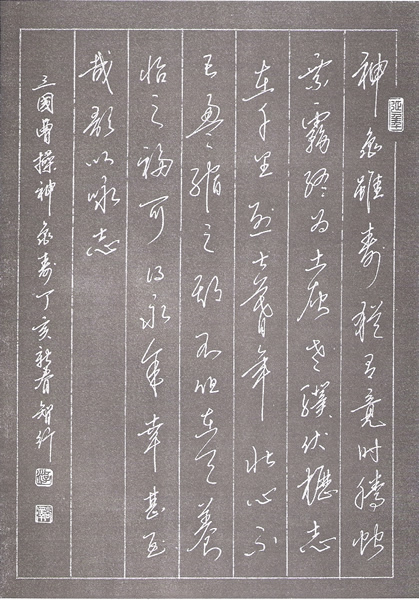 神龟雖寿猶有竟时腾蛇
乘霧终为土灰老骥伏櫪志
在千里烈士暮年壮心不
已盈缩之期不但在天养
怡之福可得永年幸甚至
哉歌以咏志
三國曹操神龟寿丁亥新春智行